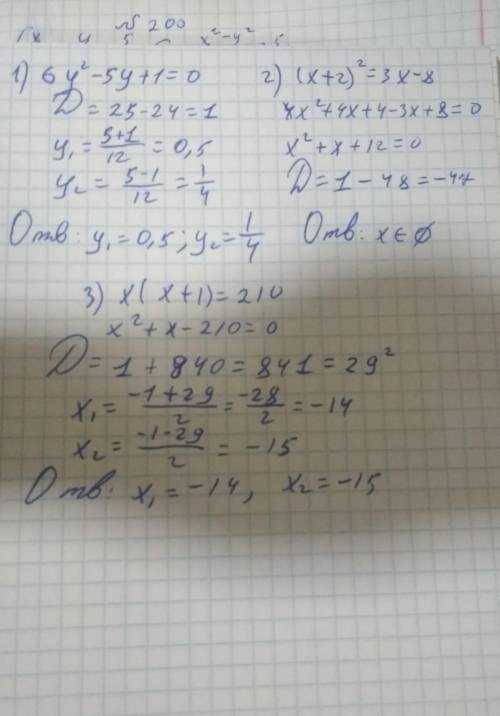 № 200
x²-y²
1) 6y²-5y+1=0
D=25-24=1
y₁=(5+1)/12=0,5
y₂=(5-1)/12=1/4
Отв: y₁=0,5; y₂=1/4
2) (x+2)²=3x-8
x²+4x+4-3x+8=0
x²+x+12=0
D=1-48=-47
Отв: x∈∅
3) x(x+1)=210
x²+x-210=0
D=1+840=841=29²
x₁=(-1+29)/2=-28/2=-14
x₂=(-1-29)/2=-15
Отв: x₁=-14, x₂=-15